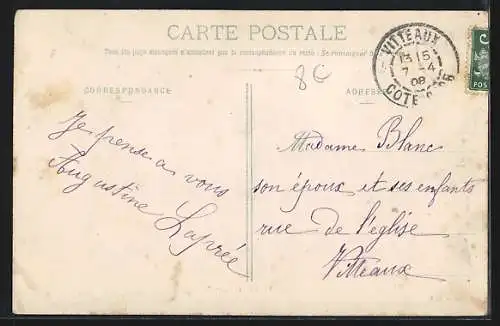 CARTE POSTALE
Tous les pays étrangers n'acceptent pas la correspondance au recto
VITTEAUX
13 15
7 -4
08
COTE D'OR
POS
8€
CORRESPONDANCE
Je pense a vous
Augustine Laprée
Madame Blanc
son époux et ses enfants
rue de l'eglise
Vitteaux